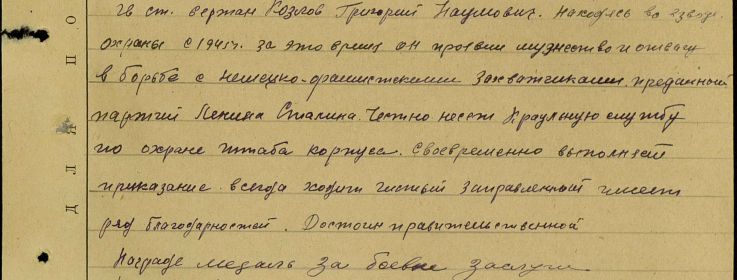 Гв ст. сержант Козлов Григорий Наумович. Находясь во взводе
охраны с 1941г. за это время он проявил мужество и отвагу
в борьбе с немецко-фашистскими захватчиками. преданный
партией Ленина Сталина. Честно несет Краульную службу
по охране штаба корпуса. Своевременно выполняет
приказание. всегда ходит чистый заправленный имеет
ряд благодарностей. Достоин правительственной
Награде медаль за боевые заслуги
Д Л Я П О